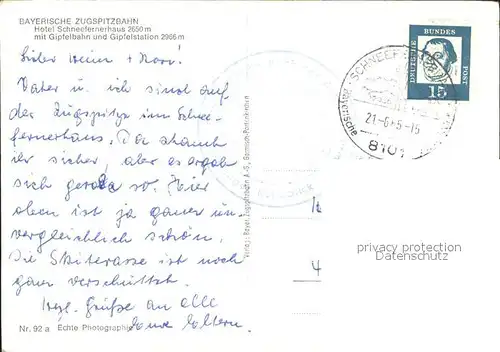 BAYERISCHE ZUGSPITZBAHN
Hotel Schneefernerhaus 2650 m
mit Gipfelbahn und Gipfelstation 2966 m
Vater u. ich sind auf
der Zugspitze im Schnee-
fernerhaus. Da staunt
ihr sicher, aber es ergab
sich gerade so. Hier
oben ist ja ganz un-
vergleichlich schön.
Die Skiterasse ist noch
ganz verschüttet.
Hrzl. Grüße an alle
Eure Eltern.
Nr. 92 a Echte Photographie
Verlag: Bayer. Zugspitzbahn A.-G., Garmisch-Partenkirchen
DEUTSCHE BUNDES POST
15
SCHNEEF
Bayerische
21.-6.65.-15
8101
privacy protection
Datenschutz